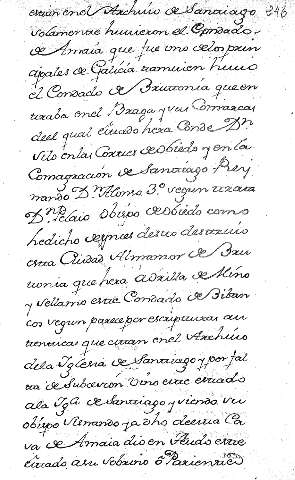 346
estan en el Archivo de Santiago
solamente huvieron el Condado
de Amaia que fue uno de los prin
cipales de Galicia tamvien huvo
el Condado de Brutonia que en
traba en el Braga y sus Comarcas
de el qual estado hera Conde Dn
vilo en las Cortes de Obiedo y en la
Consagración de Santiago Rey
nando Dn Alonso 3º segun trata
Dn Pelaio Obispo de Obiedo como
he dicho despues de su
esta Ciudad Almanzor de Bru
tonia que hera a Orilla de Miño
y se llamo este Condado de Bitan
cos segun parece por escripturas au
tenticas que estan en el Archivo
de la Iglesia de Santiago y por fal
ta de Subcesion Vino este estado
a la Iga de Santiago y viendo su
obispo Sisnando q a dho de esta Ca
sa de Amaia dio en feudo este
estado a su sobrino ó Pariente